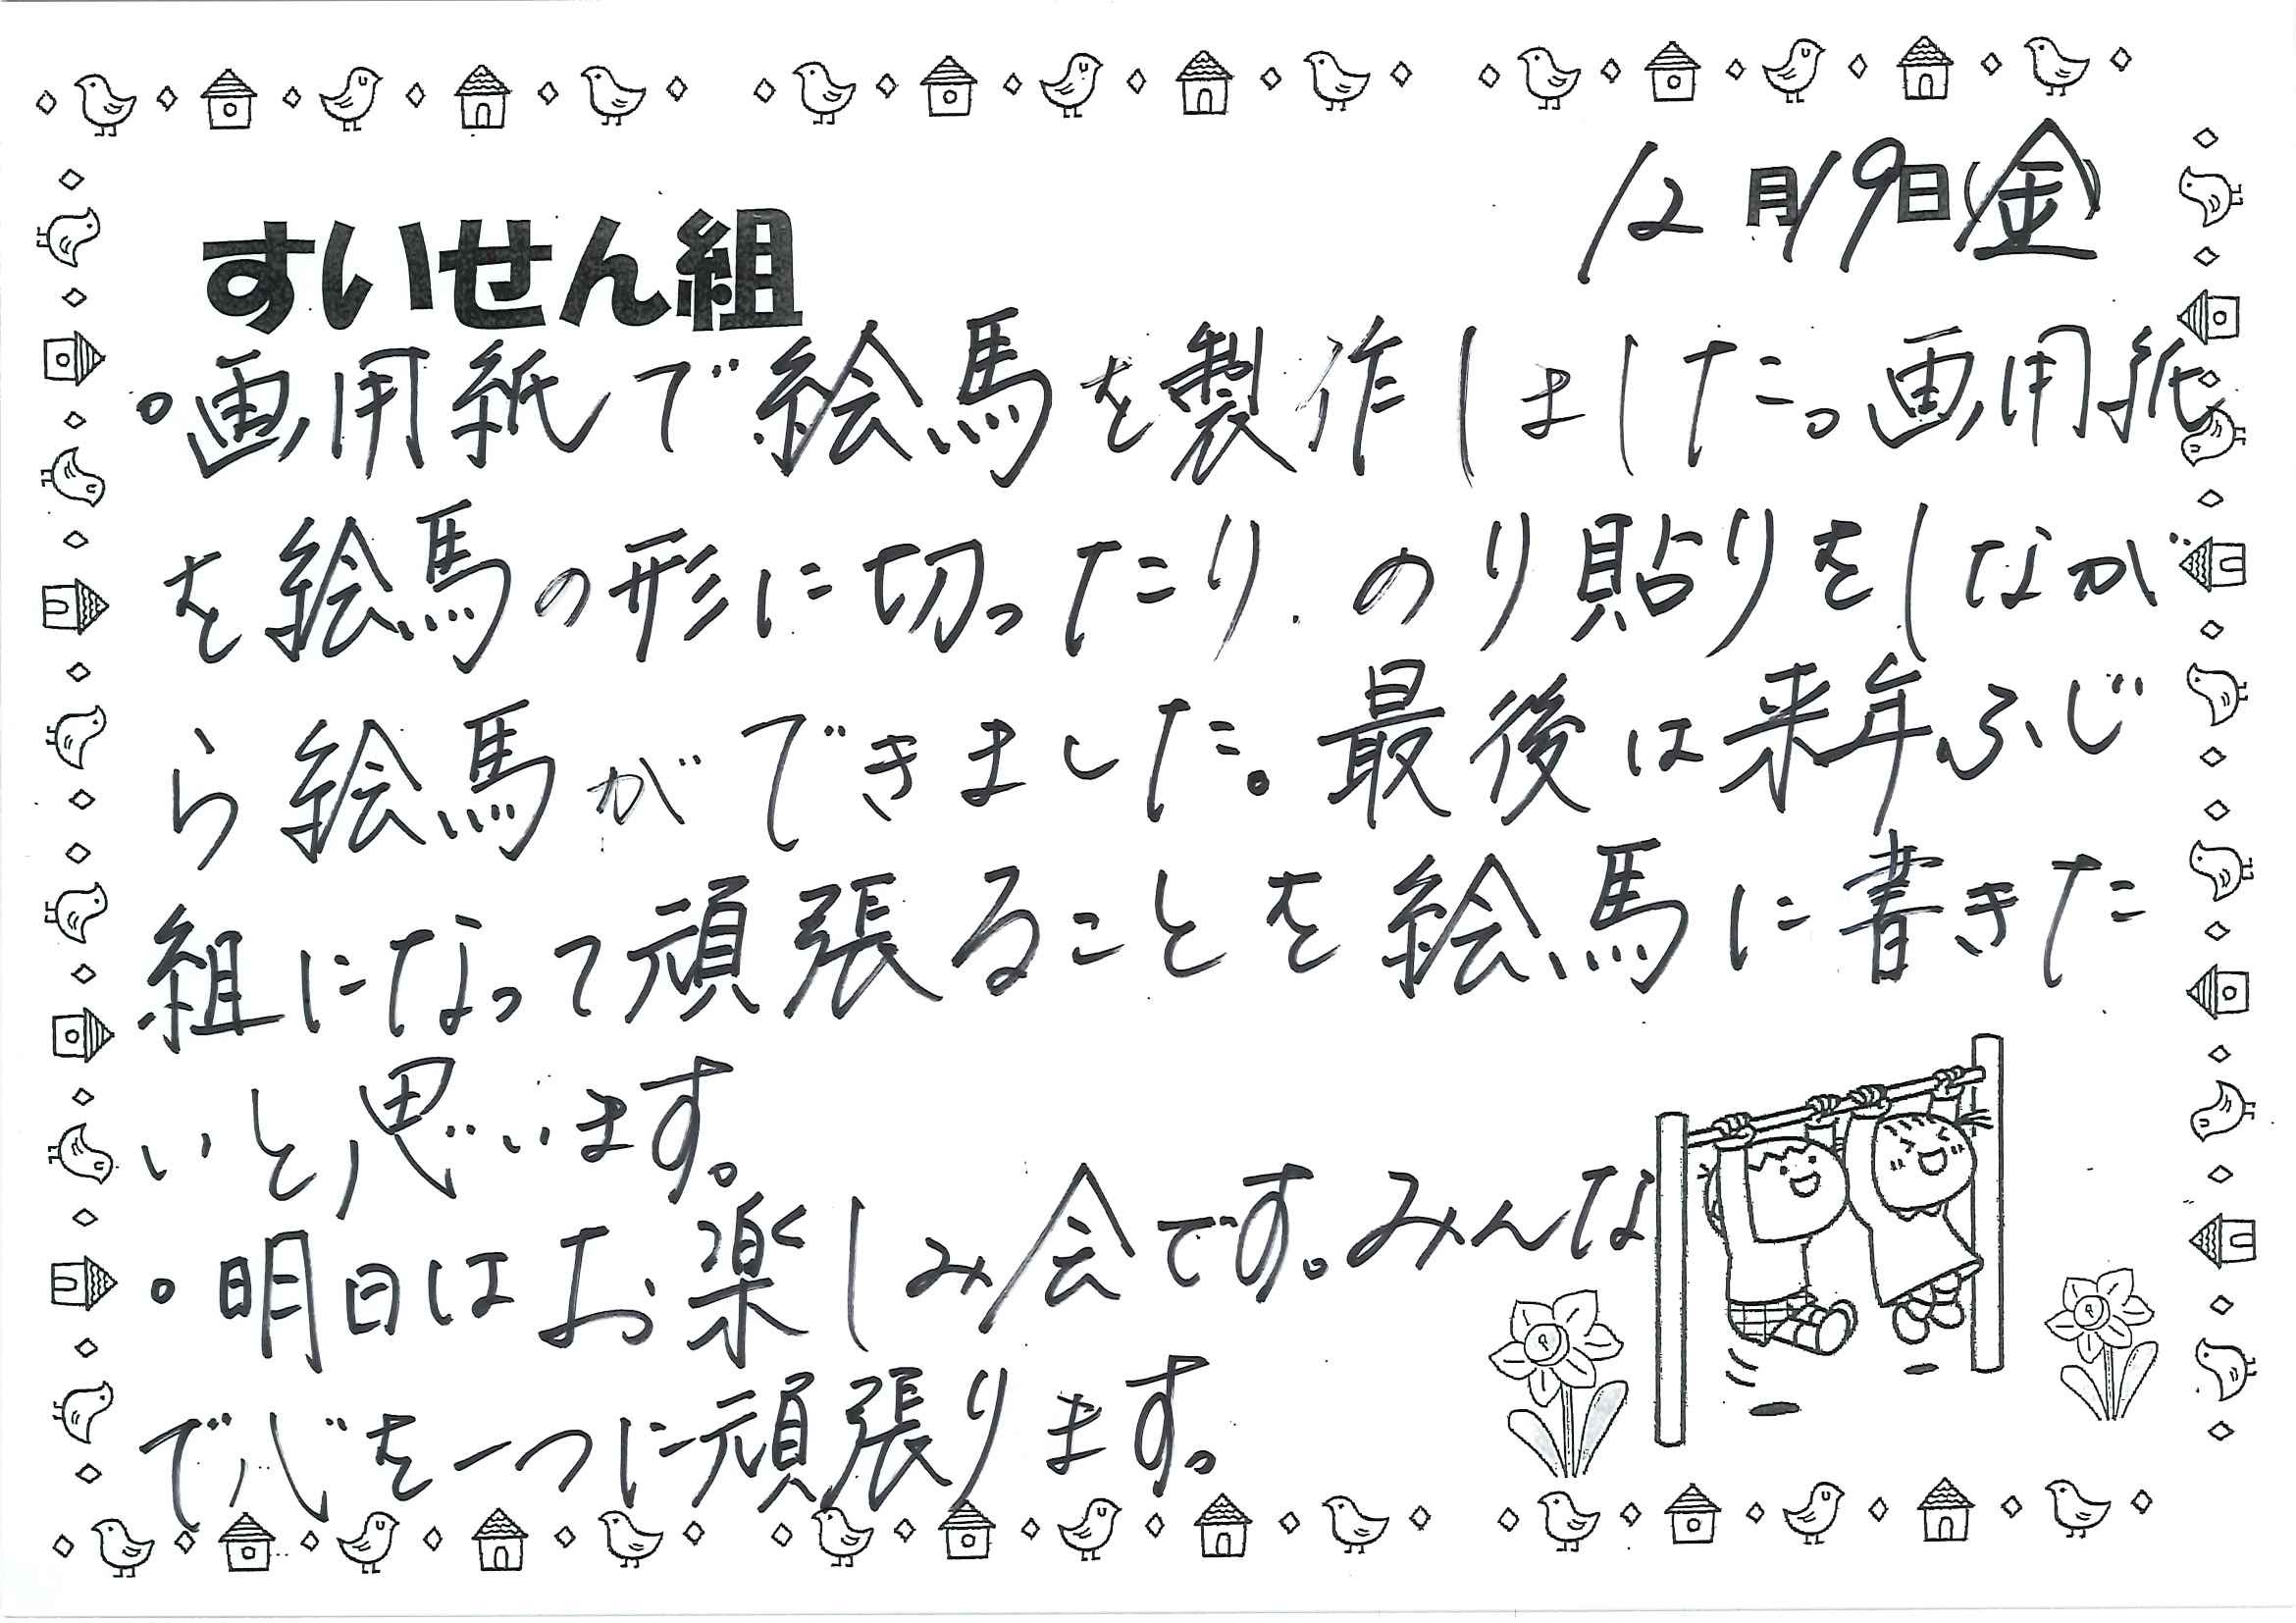 12月19日(金)
すいせん組
。画用紙で絵馬を製作しました。画用紙
を絵馬の形に切ったり、のり貼りをしなが
ら絵馬ができました。最後は来年ふじ
組になって頑張ることを絵馬に書きた
いと思います。
。明日はお楽しみ会です。みんな
で心を一つに頑張ります。